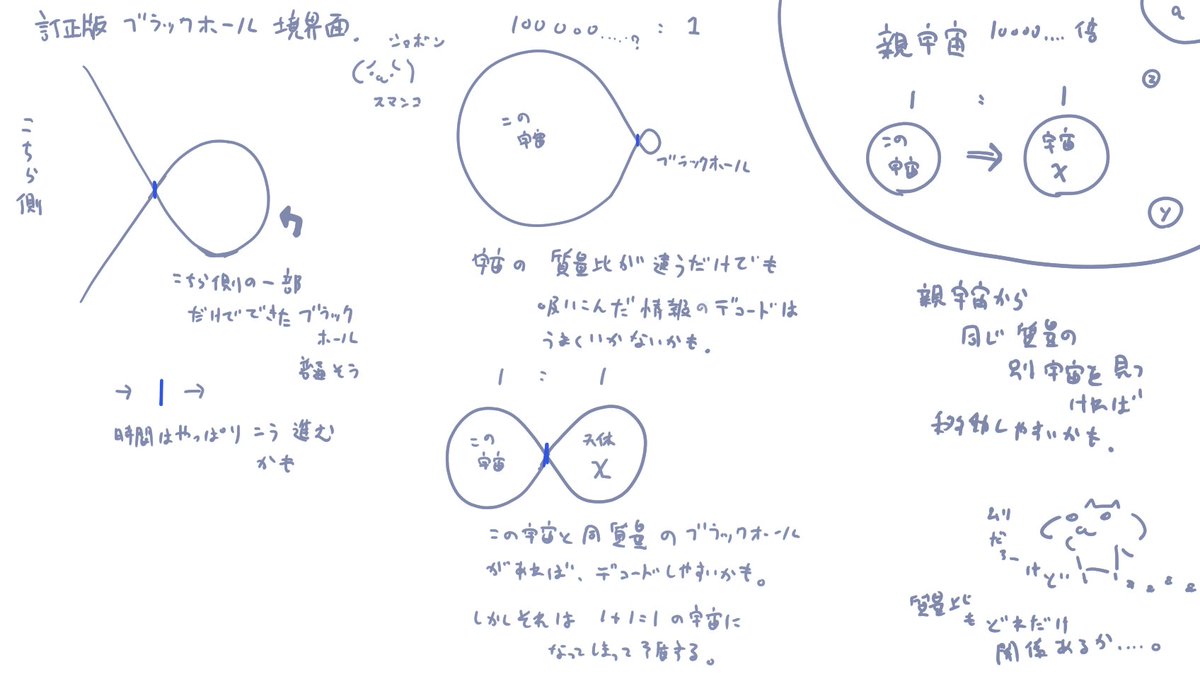 訂正版 ブラックホール 境界面.
ショボン
(´・a・`)
スマンコ
こちら側
こちら側の一部
だけでできた ブラック
ホール
普通そう
→ | →
時間はやっぱり こう 進む
かも
100000.....? : 1
この
宇宙
ブラックホール
宇宙の 質量比が 違うだけでも
吸いこんだ 情報のデコードは
うまくいかないかも。
1 : 1
この
宇宙
天体
X
この宇宙と 同質量の ブラックホール
があれば、デコードしやすいかも。
しかしそれは 1+1=1 の宇宙に
なってしまって矛盾する。
親宇宙 10000.... 倍
a
z
1 : 1
この
宇宙
⇒
宇宙
X
y
親宇宙から
同じ 質量の
別宇宙を見つ
ければ
移動しやすいかも。
ムリ
だ
ろー
けど
質量比
も どれだけ
関係あるか.....。